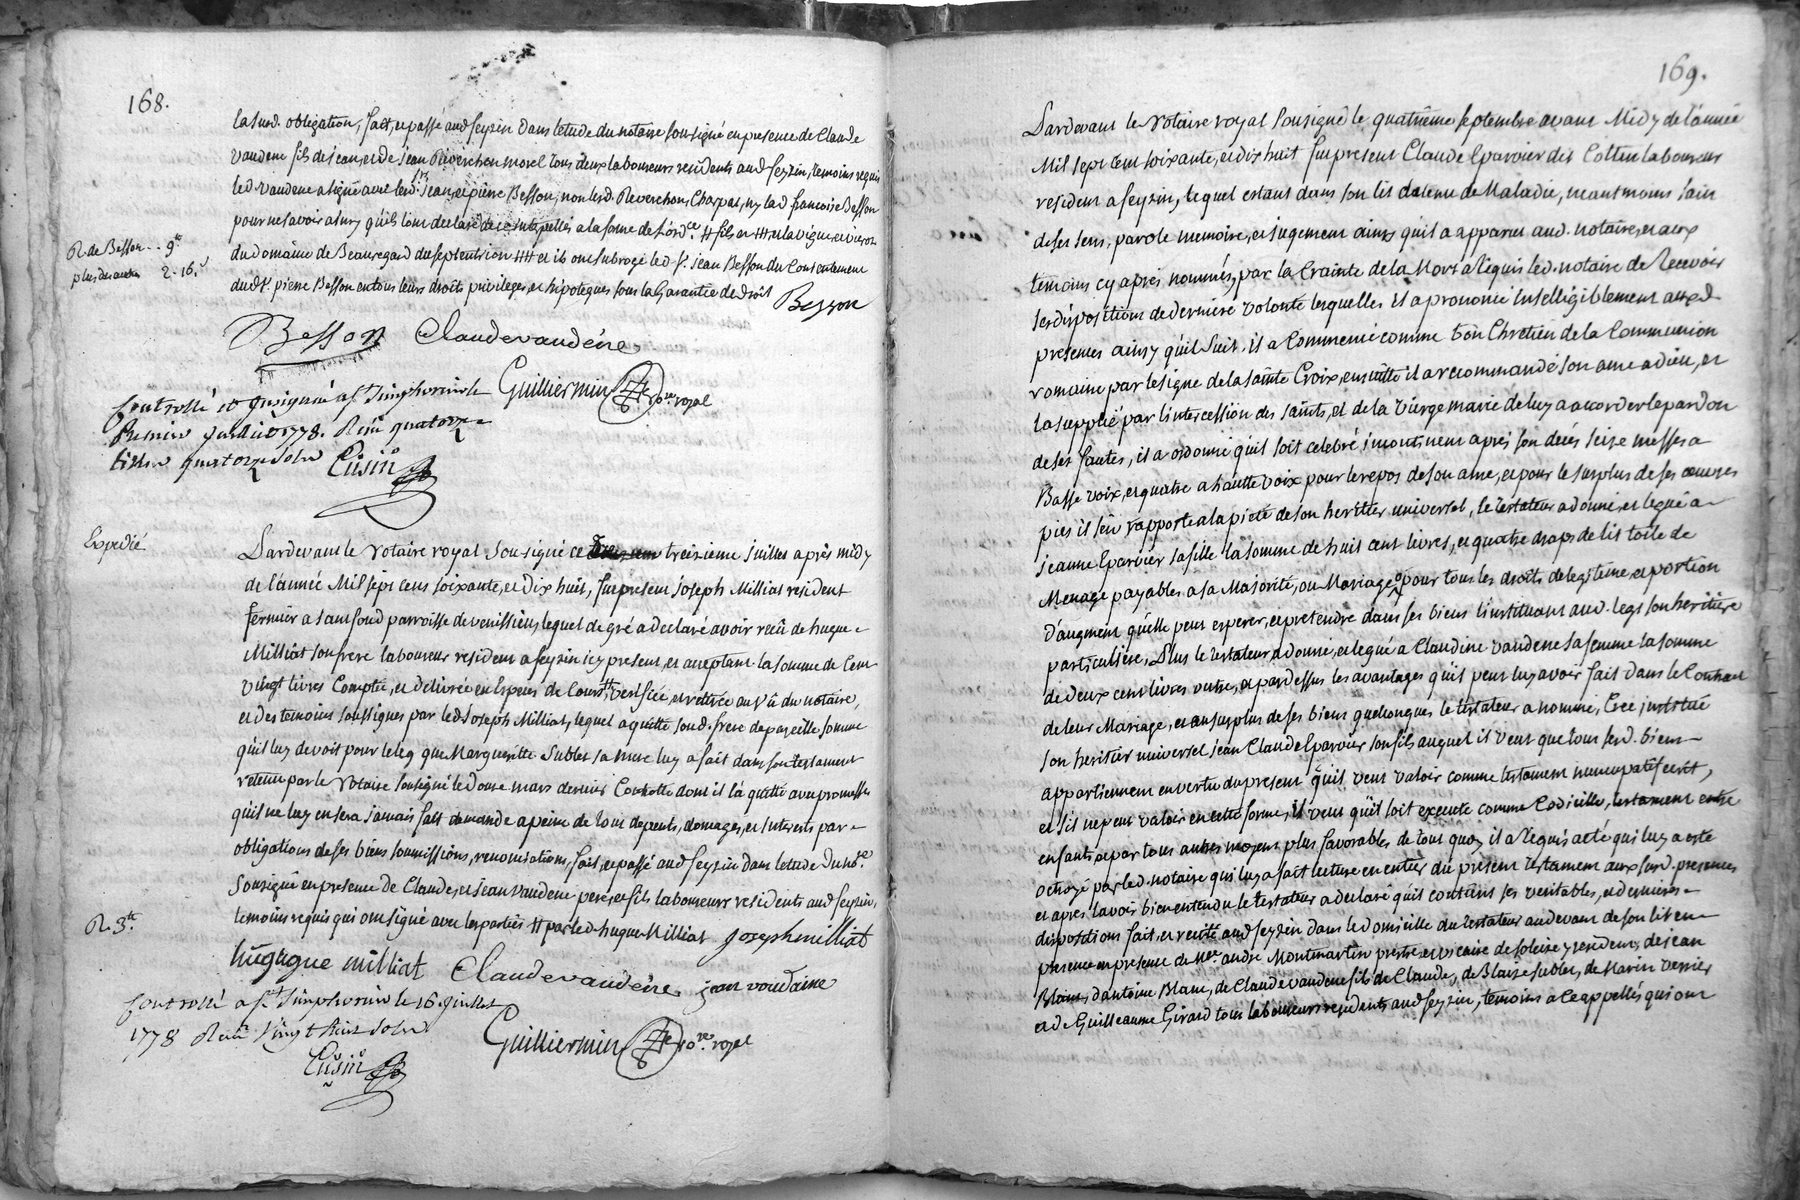 168.
la susd. obligation, fait, et passé aud. feyzin dans l'etude du notaire soussigné en presence de Claude
vaudene fils de jean, et de jean Reverchon morel tous deux laboureurs residents aud. feyzin, temoins requis
led. vaudene a signé avec lesd. srs jean, et pierre Besson, non lesd. Reverchon, Charpat, ny lad. francoise Besson
pour ne savoir a sury qu'ils l'ont declaré de ce interpellés a la forme de l'ordce. # fils et ## et la vigne, et vieron
R. de Besson.. 9tt
du domaine de Beauregard du septentrion ### et ils ont subrogé led. sr. jean Besson du Consentement
plus du autre 2. 16.s
dud. sr. pierre Besson en tous leurs droits privileges, et hipoteques sous la Garantie de droit
Besson
Besson Claudevaudéne
Guilliermin nore royal
Controllé et insinué a st Simphorien le
juillet 1778. Reçu quatorze
livres quatorze sols Cusin
Expedié
Pardevant le Notaire royal Soussigné ce treizieme juillet après midy
de l'année Mil sept cens soixante, et Dix huit, fut present joseph Milliat resident
fermier a saint fond parroisse de venissieu, lequel de gré a declaré avoir reçu de hugue
Milliat son frere laboureur resident a feyzin icy present, et acceptant la somme de Cent
vingt livres Comptée, et delivrée en Especes de Cours # veriffiée, et retirée au vû du notaire,
et des temoins soussignes par led. joseph Milliat, lequel a quitté sond. frere de pareille somme
qu'il luy devoit pour le leg que Margueritte Sublet sa mere luy a fait dans son testament
retenu par le Notaire soussigné le douse mars dernier Controllé dont il l'a quitté avec promesse
qu'il ne luy en sera jamais fait demande a peine de tous depents, domages, et Interests par
obligations de ses biens soumissions, renonciations, fait, et passé aud. feyzin dans l'etude du nore.
Soussigné en presence de Claude, et jean vaudene pere, et fils laboureurs residents aud. feyzin,
R. 3tt.
temoins requis qui ont signé avec les parties # par led. hugue Milliat josephmilliat
hugugue milliat Claudevaudéne jean voudaine
Controllé a st Simphorien le 16. juillet
1778 Reçu vingt huit sols
Guilliermin nore. royal
Cusin
169.
Pardevant le Notaire royal soussigné le quatrième septembre avant Midy de l'année
Mil sept cent soixante, et dix huit fut present Claude Eparvier dit Cottin laboureur
resident a feyzin, lequel estant dans son lit detenu de Maladie, neantmoins sain
de ses sens, parole memoire, et jugement ainsy qu'il a apparu aud. notaire, et aux
temoins cy après nommés, par la Crainte de la Mort a requis led. notaire de Recevoir
ses dispositions de derniere volonté lesquelles il a prononcé Intelligiblement auxd.
presences ainsy qu'il suit. il a Commencé comme bon Chretien de la Communion
romaine par le signe de la sainte Croix, ensuitte il a recommandé son ame a dieu, et
la supplié par l'intercession des saints, et de la vierge marie de luy accorder le pardon
de ses fautes, il a ordonné qu'il soit celebré incontinent après son decés seize messes a
Basse voix, et quatre a hautte voix pour le repos de son ame, et pour le surplus de ses œuvres
pies il s'en rapporte a la pieté de son heritier universel, le testateur a donné, et legué a
jeanne Eparvier sa fille la somme de huit cent livres, et quatre draps de lit toile de
Menage payables a sa Majorité, ou Mariage pour tous les droits de legitime, et portion
d'augment qu'elle peut esperer, et pretendre dans ses biens l'instituant aud. legs son heritiere
particuliere, Plus le testateur a donné, et legué a Claudine vaudene sa femme la somme
de deux cent livres outre, et pardessus les avantages qu'il peut luy avoir fait dans le Contract
de leur Mariage, et au surplus de ses biens quelconques le testateur a nommé, Créé, institué
son heritier universel jean Claude Eparvier son fils auquel il veut que tous sesd. biens
appartiennent en vertu du present qu'il veut valoir comme testament nuncupatif ecrit,
et s'il ne peut valoir en cette forme, il veut qu'il soit execute comme Codicille, testament entre
enfants, et par tous autres moyens plus favorables de tout quoy il a requis acte qui luy a esté
octroyé par led. notaire qui luy a fait lecture en entier du present testament aux susd. presences
et après l'avoir bien entendu le testateur a declaré qu'il contient ses veritables, et dernieres
dispositions fait, et recité aud. feyzin dans le domicille du testateur au devant de son lit en
presence en presence de Mre. andré Montmartin pretre, et vicaire de soleize y residant, de jean
Blanc, d'antoine Blanc, de Claude vaudene fils de Claude, de Blaize Sublet, de Marin Verrier
et de Guilleaume Girard tous laboureurs residents aud. feyzin, temoins a ce appellés qui ont